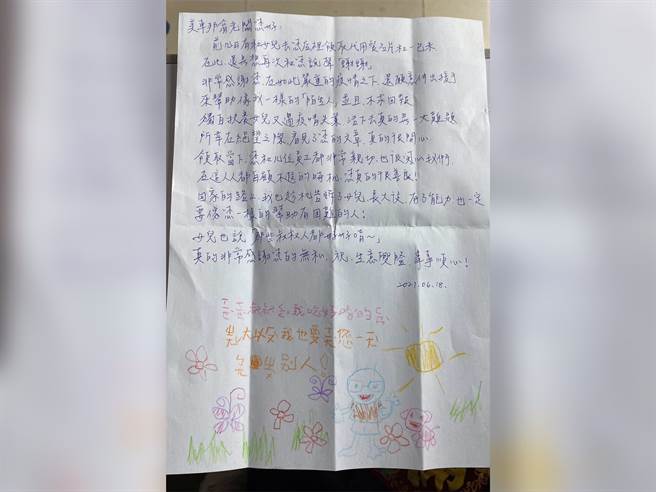 前幾日有和女兒去您店裡領取代用餐五片和一包米
在此,還是想再次和您說聲「謝謝」
非常感謝您在如此嚴重的疫情之下,還願意伸出援手
來幫助像我一樣的「陌生人」並且,不求回報
獨自扶養女兒又遇疫情失業,活下去真的是一大難題
所幸在絕望之際,看見了您的文章,真的很開心
領取當下,您和幾位員工都非常親切,也很關心我們
在這人人都自顧不暇的時机,您真的很善良!
回家的路上,我也趁机告訴了女兒,長大後,有了能力也一定
要像您一樣的幫助有困難的人!
女兒也說「那些叔叔人都好好唷~」
真的非常感謝您的無私,祝:生意興隆 事事順心!
2021.06.18.
長大以後我也要走您一天
別人!